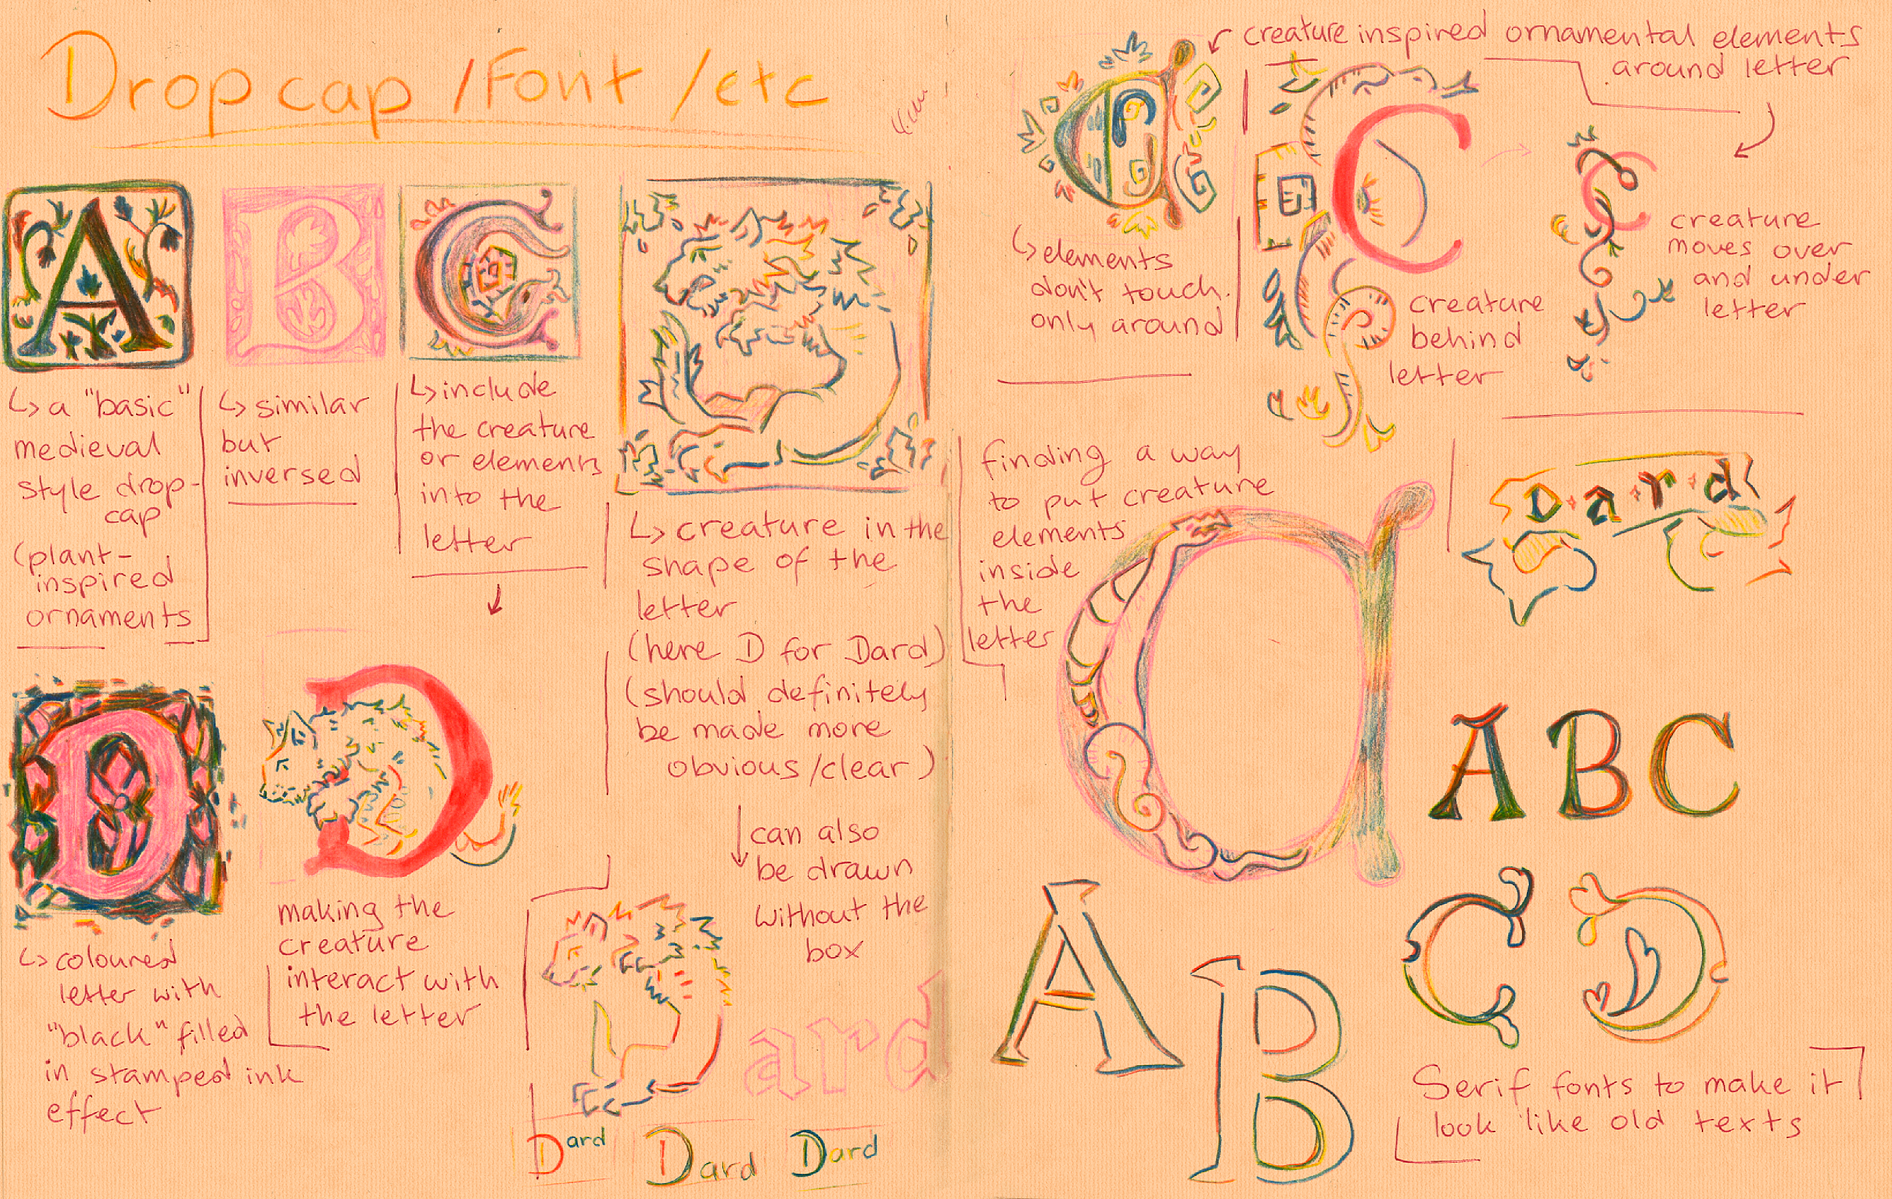 Drop cap / Font / etc
A
↳ a "basic"
medieval
style drop-
cap
(plant-
inspired
ornaments
B
↳ similar
but
inversed
C
↳ include
the creature
or elements
into the
letter
↳ creature in the
shape of the
letter
(here D for Dard)
(should definitely
be made more
obvious/clear)
can also
be drawn
without the
box
ard
Dard
Dard
Dard
B
↳ coloured
letter with
"black" filled
in stamped ink
effect
D
making the
creature
interact with
the letter
creature inspired ornamental elements
around letter
↳ elements
don't touch.
only around
C
creature
behind
letter
C
creature
moves over
and under
letter
finding a way
to put creature
elements
inside
the
letter
D·a·r·d
A B C
A B C
Serif fonts to make it
look like old texts